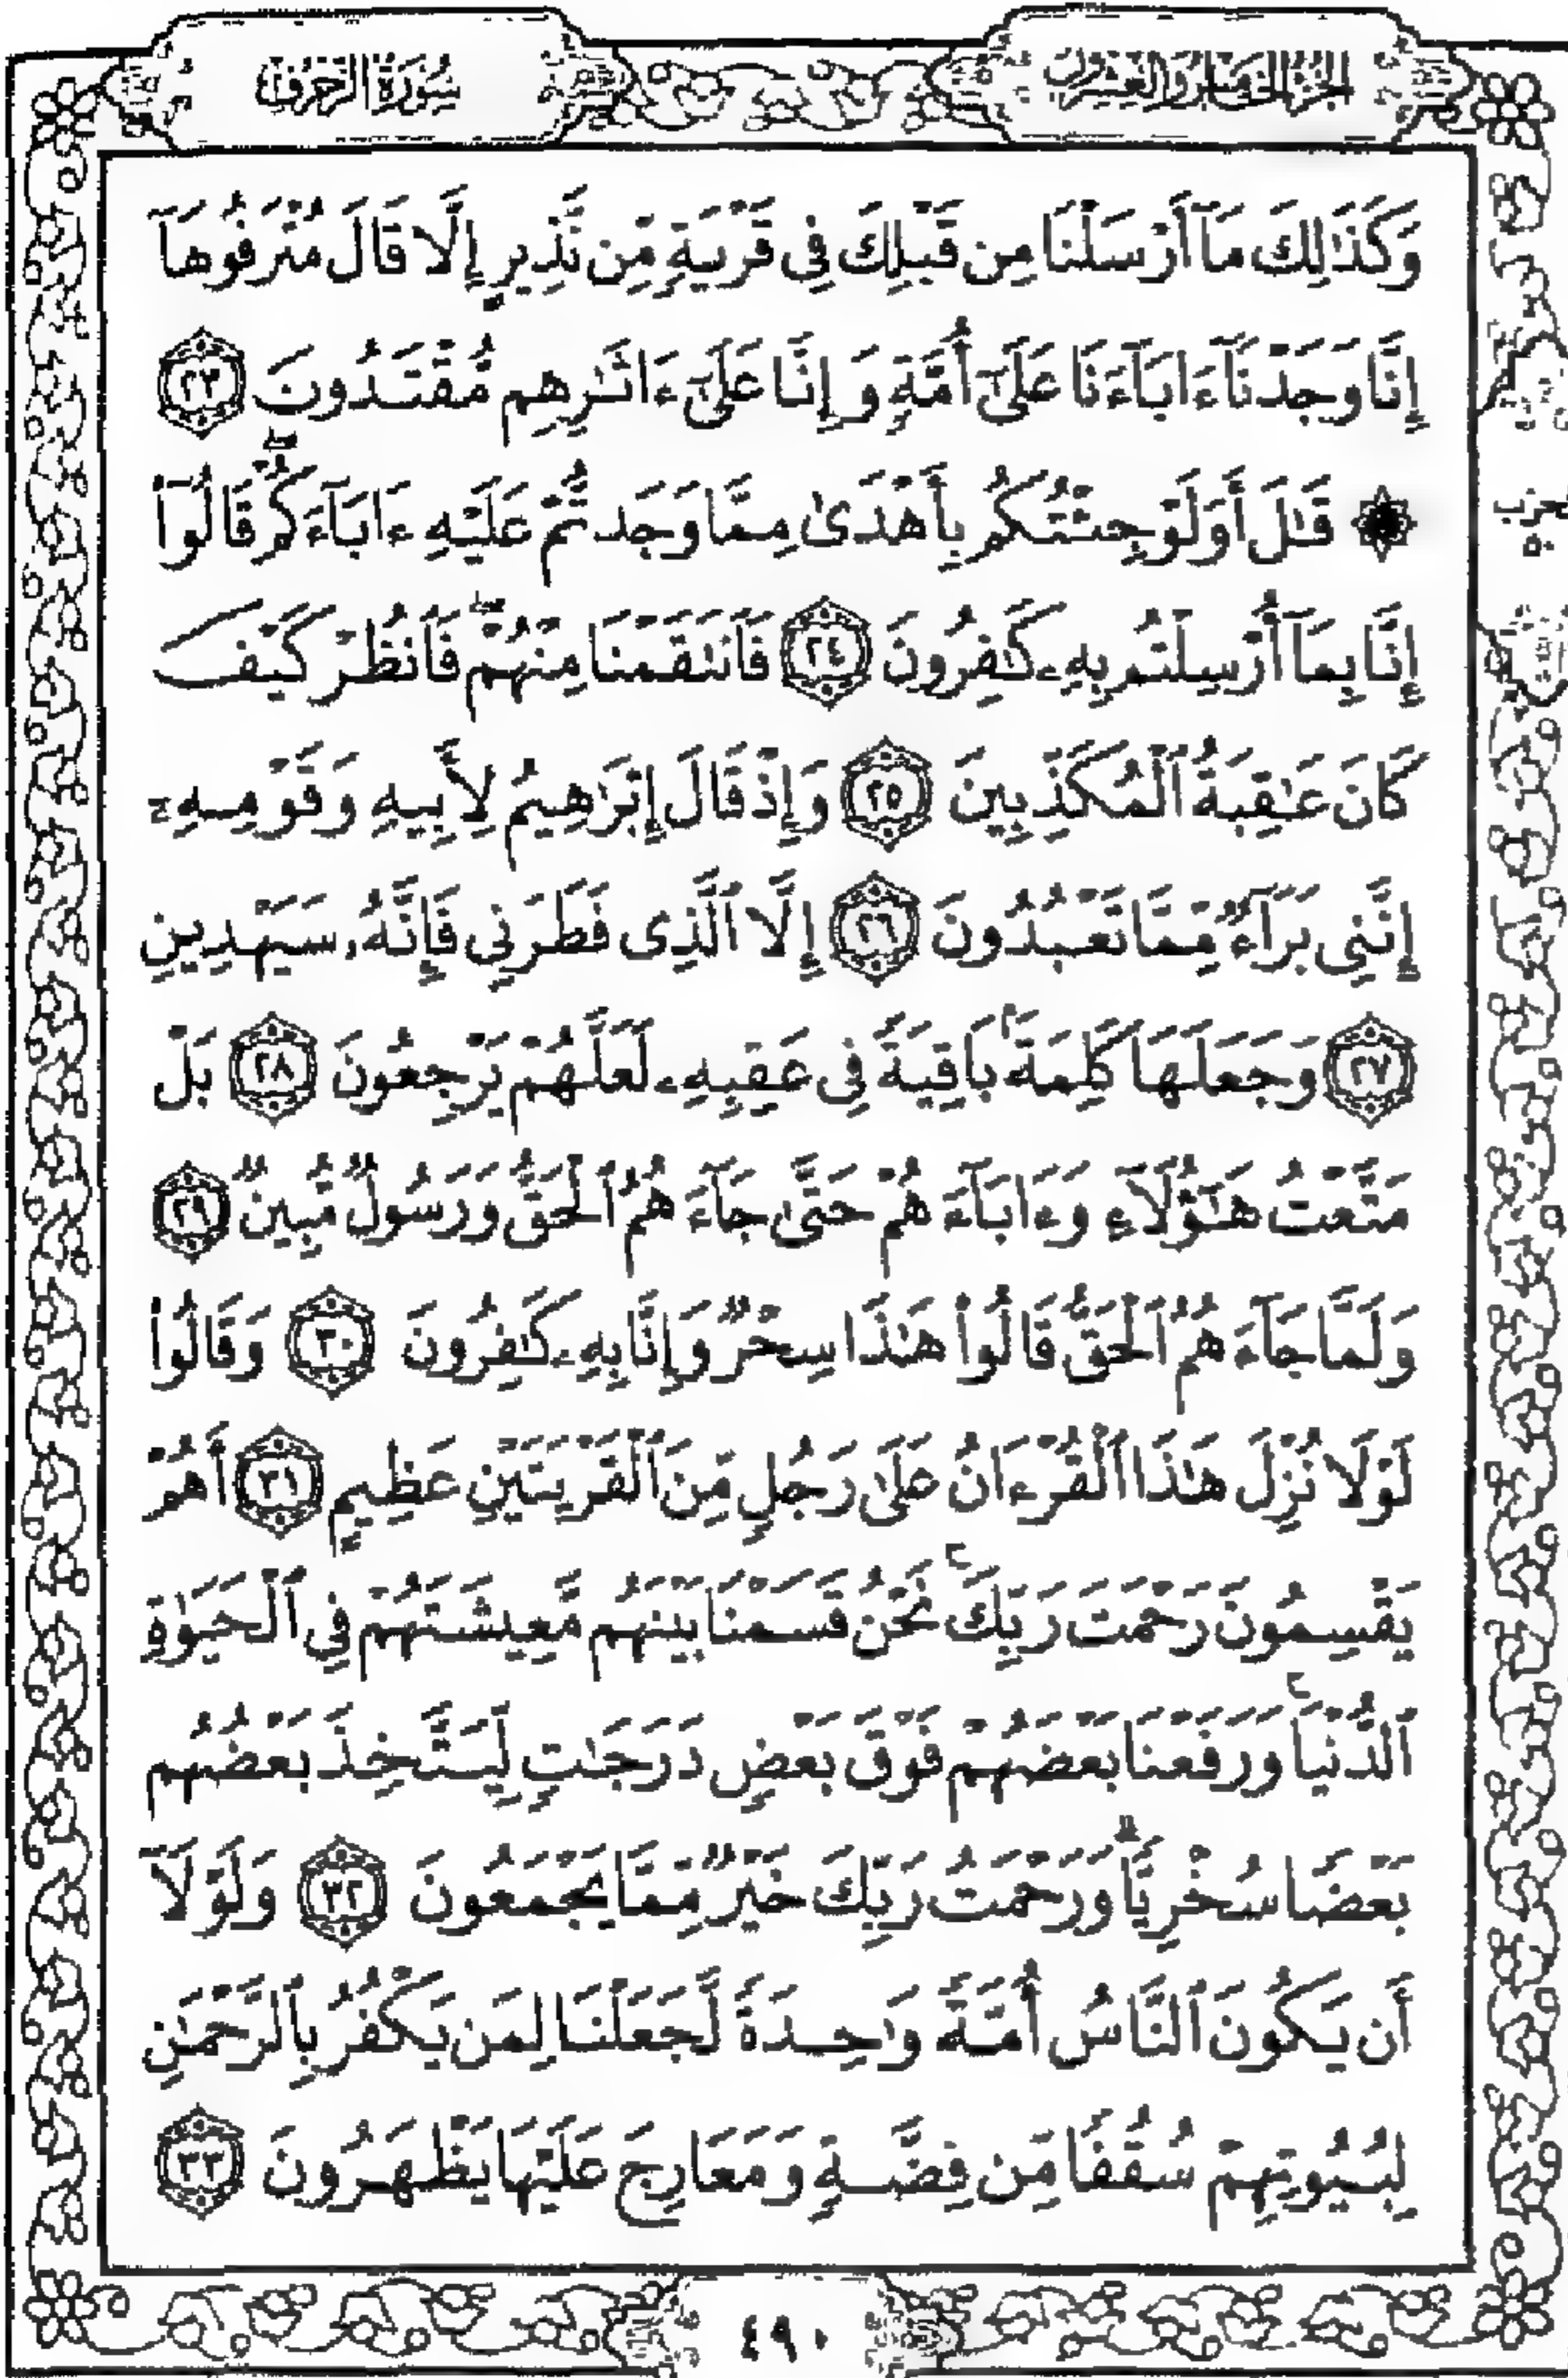 الجزء الخامس والعشرون
سُورَةُ الزُّخْرُفِ
وَكَذَٰلِكَ مَآ أَرْسَلْنَا مِن قَبْلِكَ فِى قَرْيَةٍ مِّن نَّذِيرٍ إِلَّا قَالَ مُتْرَفُوهَآ
إِنَّا وَجَدْنَآ ءَابَآءَنَا عَلَىٰٓ أُمَّةٍ وَإِنَّا عَلَىٰٓ ءَاثَٰرِهِم مُّقْتَدُونَ ٢٣
۞ قَٰلَ أَوَلَوْ جِئْتُكُم بِأَهْدَىٰ مِمَّا وَجَدتُّمْ عَلَيْهِ ءَابَآءَكُمْ ۖ قَالُوٓا۟
إِنَّا بِمَآ أُرْسِلْتُم بِهِۦ كَٰفِرُونَ ٢٤ فَٱنتَقَمْنَا مِنْهُمْ ۖ فَٱنظُرْ كَيْفَ
كَانَ عَٰقِبَةُ ٱلْمُكَذِّبِينَ ٢٥ وَإِذْ قَالَ إِبْرَٰهِيمُ لِأَبِيهِ وَقَوْمِهِۦٓ
إِنَّنِى بَرَآءٌ مِّمَّا تَعْبُدُونَ ٢٦ إِلَّا ٱلَّذِى فَطَرَنِى فَإِنَّهُۥ سَيَهْدِينِ
٢٧ وَجَعَلَهَا كَلِمَةًۢ بَاقِيَةً فِى عَقِبِهِۦ لَعَلَّهُمْ يَرْجِعُونَ ٢٨ بَلْ
مَتَّعْتُ هَٰٓؤُلَآءِ وَءَابَآءَهُمْ حَتَّىٰ جَآءَهُمُ ٱلْحَقُّ وَرَسُولٌ مُّبِينٌ ٢٩
وَلَمَّا جَآءَهُمُ ٱلْحَقُّ قَالُوا۟ هَٰذَا سِحْرٌ وَإِنَّا بِهِۦ كَٰفِرُونَ ٣٠ وَقَالُوا۟
لَوْلَا نُزِّلَ هَٰذَا ٱلْقُرْءَانُ عَلَىٰ رَجُلٍ مِّنَ ٱلْقَرْيَتَيْنِ عَظِيمٍ ٣١ أَهُمْ
يَقْسِمُونَ رَحْمَتَ رَبِّكَ ۚ نَحْنُ قَسَمْنَا بَيْنَهُم مَّعِيشَتَهُمْ فِى ٱلْحَيَوٰةِ
ٱلدُّنْيَا ۚ وَرَفَعْنَا بَعْضَهُمْ فَوْقَ بَعْضٍ دَرَجَٰتٍ لِّيَتَّخِذَ بَعْضُهُم
بَعْضًا سُخْرِيًّا ۗ وَرَحْمَتُ رَبِّكَ خَيْرٌ مِّمَّا يَجْمَعُونَ ٣٢ وَلَوْلَآ
أَن يَكُونَ ٱلنَّاسُ أُمَّةً وَٰحِدَةً لَّجَعَلْنَا لِمَن يَكْفُرُ بِٱلرَّحْمَٰنِ
لِبُيُوتِهِمْ سُقُفًا مِّن فِضَّةٍ وَمَعَارِجَ عَلَيْهَا يَظْهَرُونَ ٣٣
٤٩٠